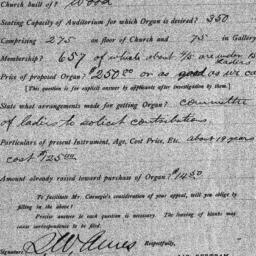 Church built of? Wood
Seating Capacity of Auditorium for which Organ is desired? 350
Comprising 275 on floor of Church and 75 in Gallery
Membership? 657 of which about 2/5 are under 15
Price of proposed Organ? $250.00 or as good as we ca
[This question is for explicit answer by applicants after investigation by them.]
State what arrangements made for getting Organ? Committee
of ladies to solicit contributions
Particulars of present Instrument, Age, Cost Price, Etc. about 18 years
cost $125.00
Amount already raised toward purchase of Organ?
To facilitate Mr. Carnegie's consideration of your appeal, will you oblige by
filling in the above?
Precise answer to each question is necessary. The leaving of blanks may
cause correspondence to be filed.
Respectfully,
Signature